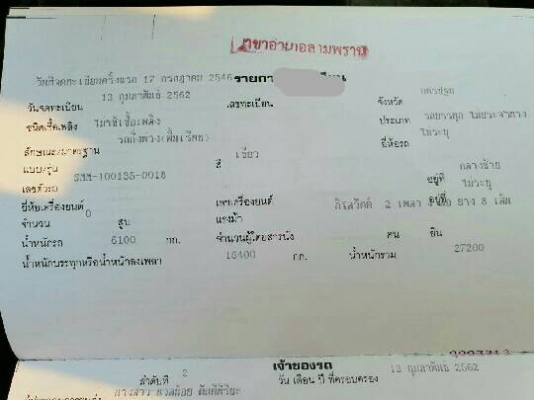 สาขาอำเภอสามพราน
วันจดทะเบียนครั้งแรก 17 กรกฎาคม 2546 รายการ
วันจดทะเบียน 13 กุมภาพันธ์ 2562 เลขทะเบียน จังหวัด นครปฐม
ชนิดเชื้อเพลิง ไม่ใช้เชื้อเพลิง ประเภท รถบรรทุก ไม่ประจำทาง
ลักษณะ/มาตรฐาน รถกึ่งพ่วง ยี่ห้อรถ ไม่ระบุ
แบบ/รุ่น สี เขียว
เลขตัวรถ SMM-100135-0018 อยู่ที่ กลางซ้าย
ยี่ห้อเครื่องยนต์ เลขเครื่องยนต์ อยู่ที่ ไม่ระบุ
จำนวน 0 สูบ แรงม้า กิโลวัตต์ 2 เพลา ล้อ ยาง 8 เส้น
น้ำหนักรถ 6100 กก. จำนวนผู้โดยสารนั่ง คน ยืน
น้ำหนักบรรทุกหรือน้ำหนักลงเพลา 16400 กก. น้ำหนักรวม 27200
เจ้าของรถ
ลำดับที่ 2 วัน เดือน ปี ที่ครอบครอง 13 กุมภาพันธ์ 2562